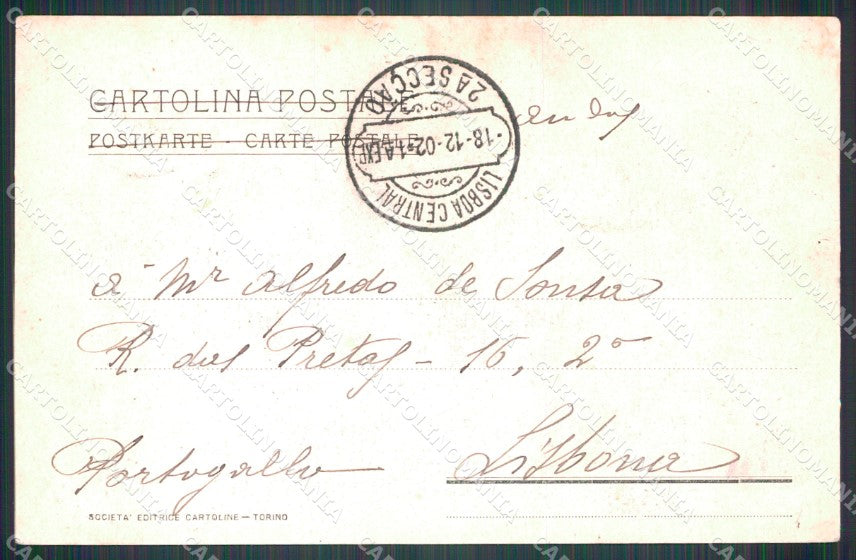 CARTOLINA POSTALE
POSTKARTE - CARTE POSTALE
2A SECÇÃO
-18-12-02-1A
LISBOA CENTRAL
a Mr Alfredo de Sousa
R. das Pretas - 16, 2º
Lisbona
Portogallo
SOCIETA' EDITRICE CARTOLINE — TORINO
CARTOLINOMANIA